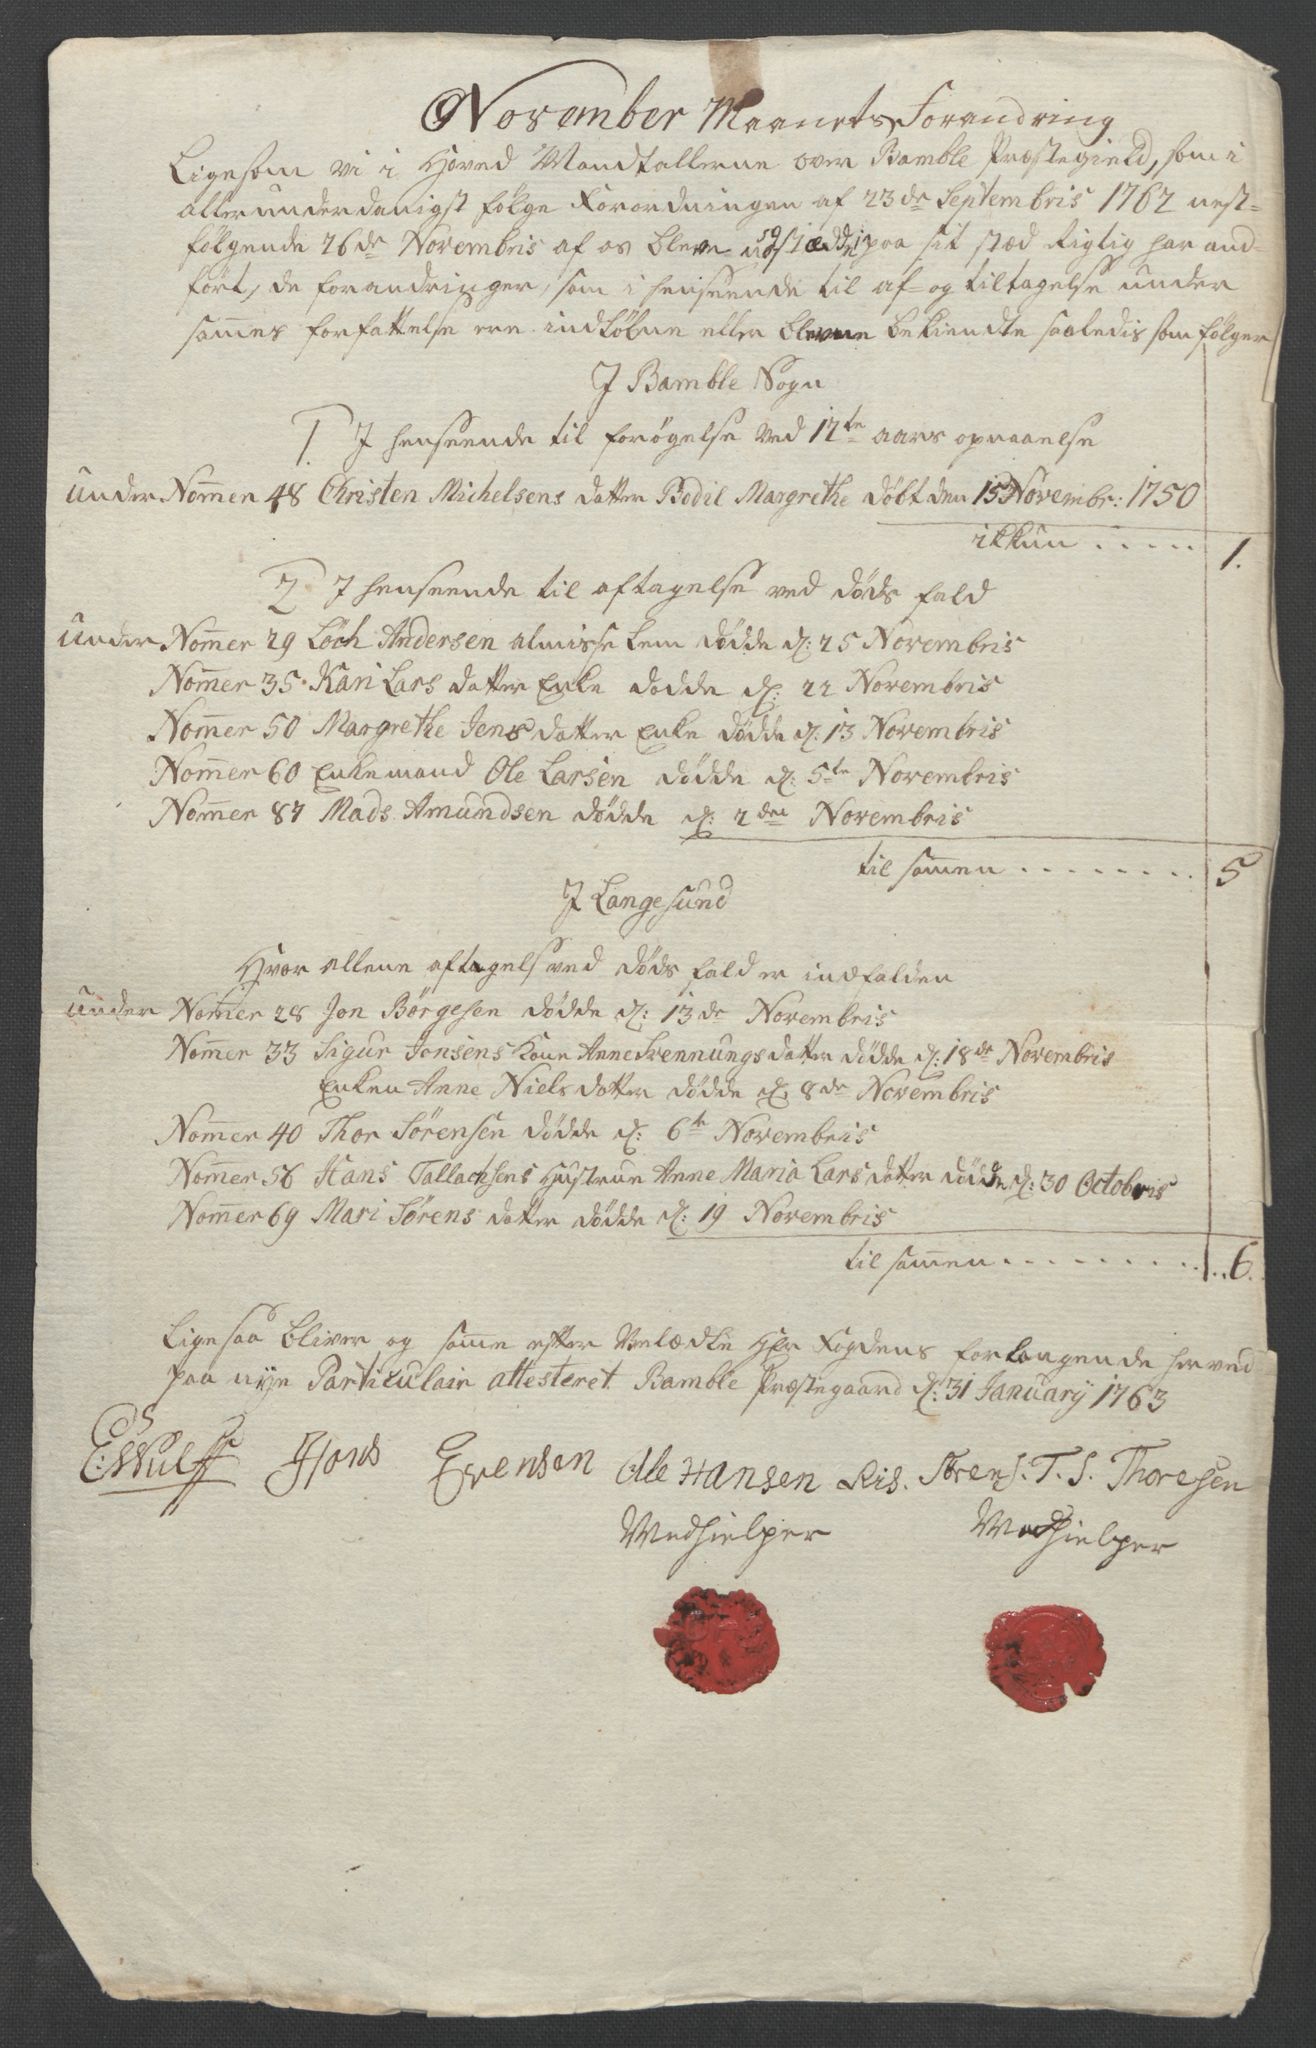 November Maanets Forandring
Ligesom vi i Hoved Mandtallerne over Bamble Præstegield, som i
allerunderdanigst følge Forordningen af 23de Septembris 1762 nest=
følgende 26de Novembris af os bleve udstædde, paa sit stæd Rigtig har and=
ført, de forandringer, som i henseende til af- og tiltagelse under
sam̄es forfattelse ere indløbne eller blevne bekiendte saaledis som følger
J Bamble Sogn
1. J henseende til forøgelse ved 12te aars opnaaelse
under Nom̄er 48 Christen Michelsens datter Bodil Margrethe døbt den 15 Novembr: 1750
ikkun ..... 1.
2 J henseende til aftagelse ved døds fald
Under Nom̄er 29 Loch Andersen almisse Lem dødde d: 25 Novembris
Nom̄er 35 Kari Lars datter Enke dødde d: 22 Novembris
Nom̄er 50 Margrethe Jens datter Enke dødde d: 13 Novembris
Nom̄er 60 Enkemand Ole Larsen dødde d: 5te Novembris
Nom̄er 87 Mads Amundsen dødde d: 2den Novembris
til sam̄en ........ 5
J Langesund
Hvor allene aftagelse ved døds fald er indfalden
under Nom̄er 28 Jon Börgesen dødde d: 13de Novembris
Nom̄er 33 Sigur Jonsens Kone Anne Svennungs datter dødde d: 18de Novembris
Enken Anne Niels datter dødde d: 8de Novembris
Nom̄er 40 Thor Sørensen dødde d: 6te Novembris
Nom̄er 56 Hans Tallachsens Hustrue Anne Maria Lars datter dødde d: 30 Octobris
Nom̄er 69 Mari Sørens datter dødde d: 19 Novembris
til sam̄en ........ 6.
Ligesaa bliver og sam̄e efter Velædle Hr Fogdens forlangende herved
paa nye Particulair attesteret. Bamble Præstegaard d: 31 January 1763
E: Wulff Evensen Ole Hansen Ris. Sørens. T. S. Thoresen
Medhielper Medhielper